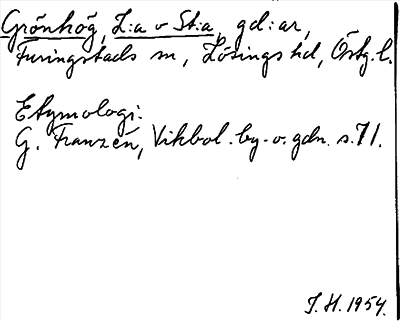 Grönhög, L:a o St:a, gd:ar,
Furingstads sn, Lösings hd, Östg.l.
Etymologi:
G. Franzén, Vikbol. by- o. gdn. s. 71.
J. H. 1954.